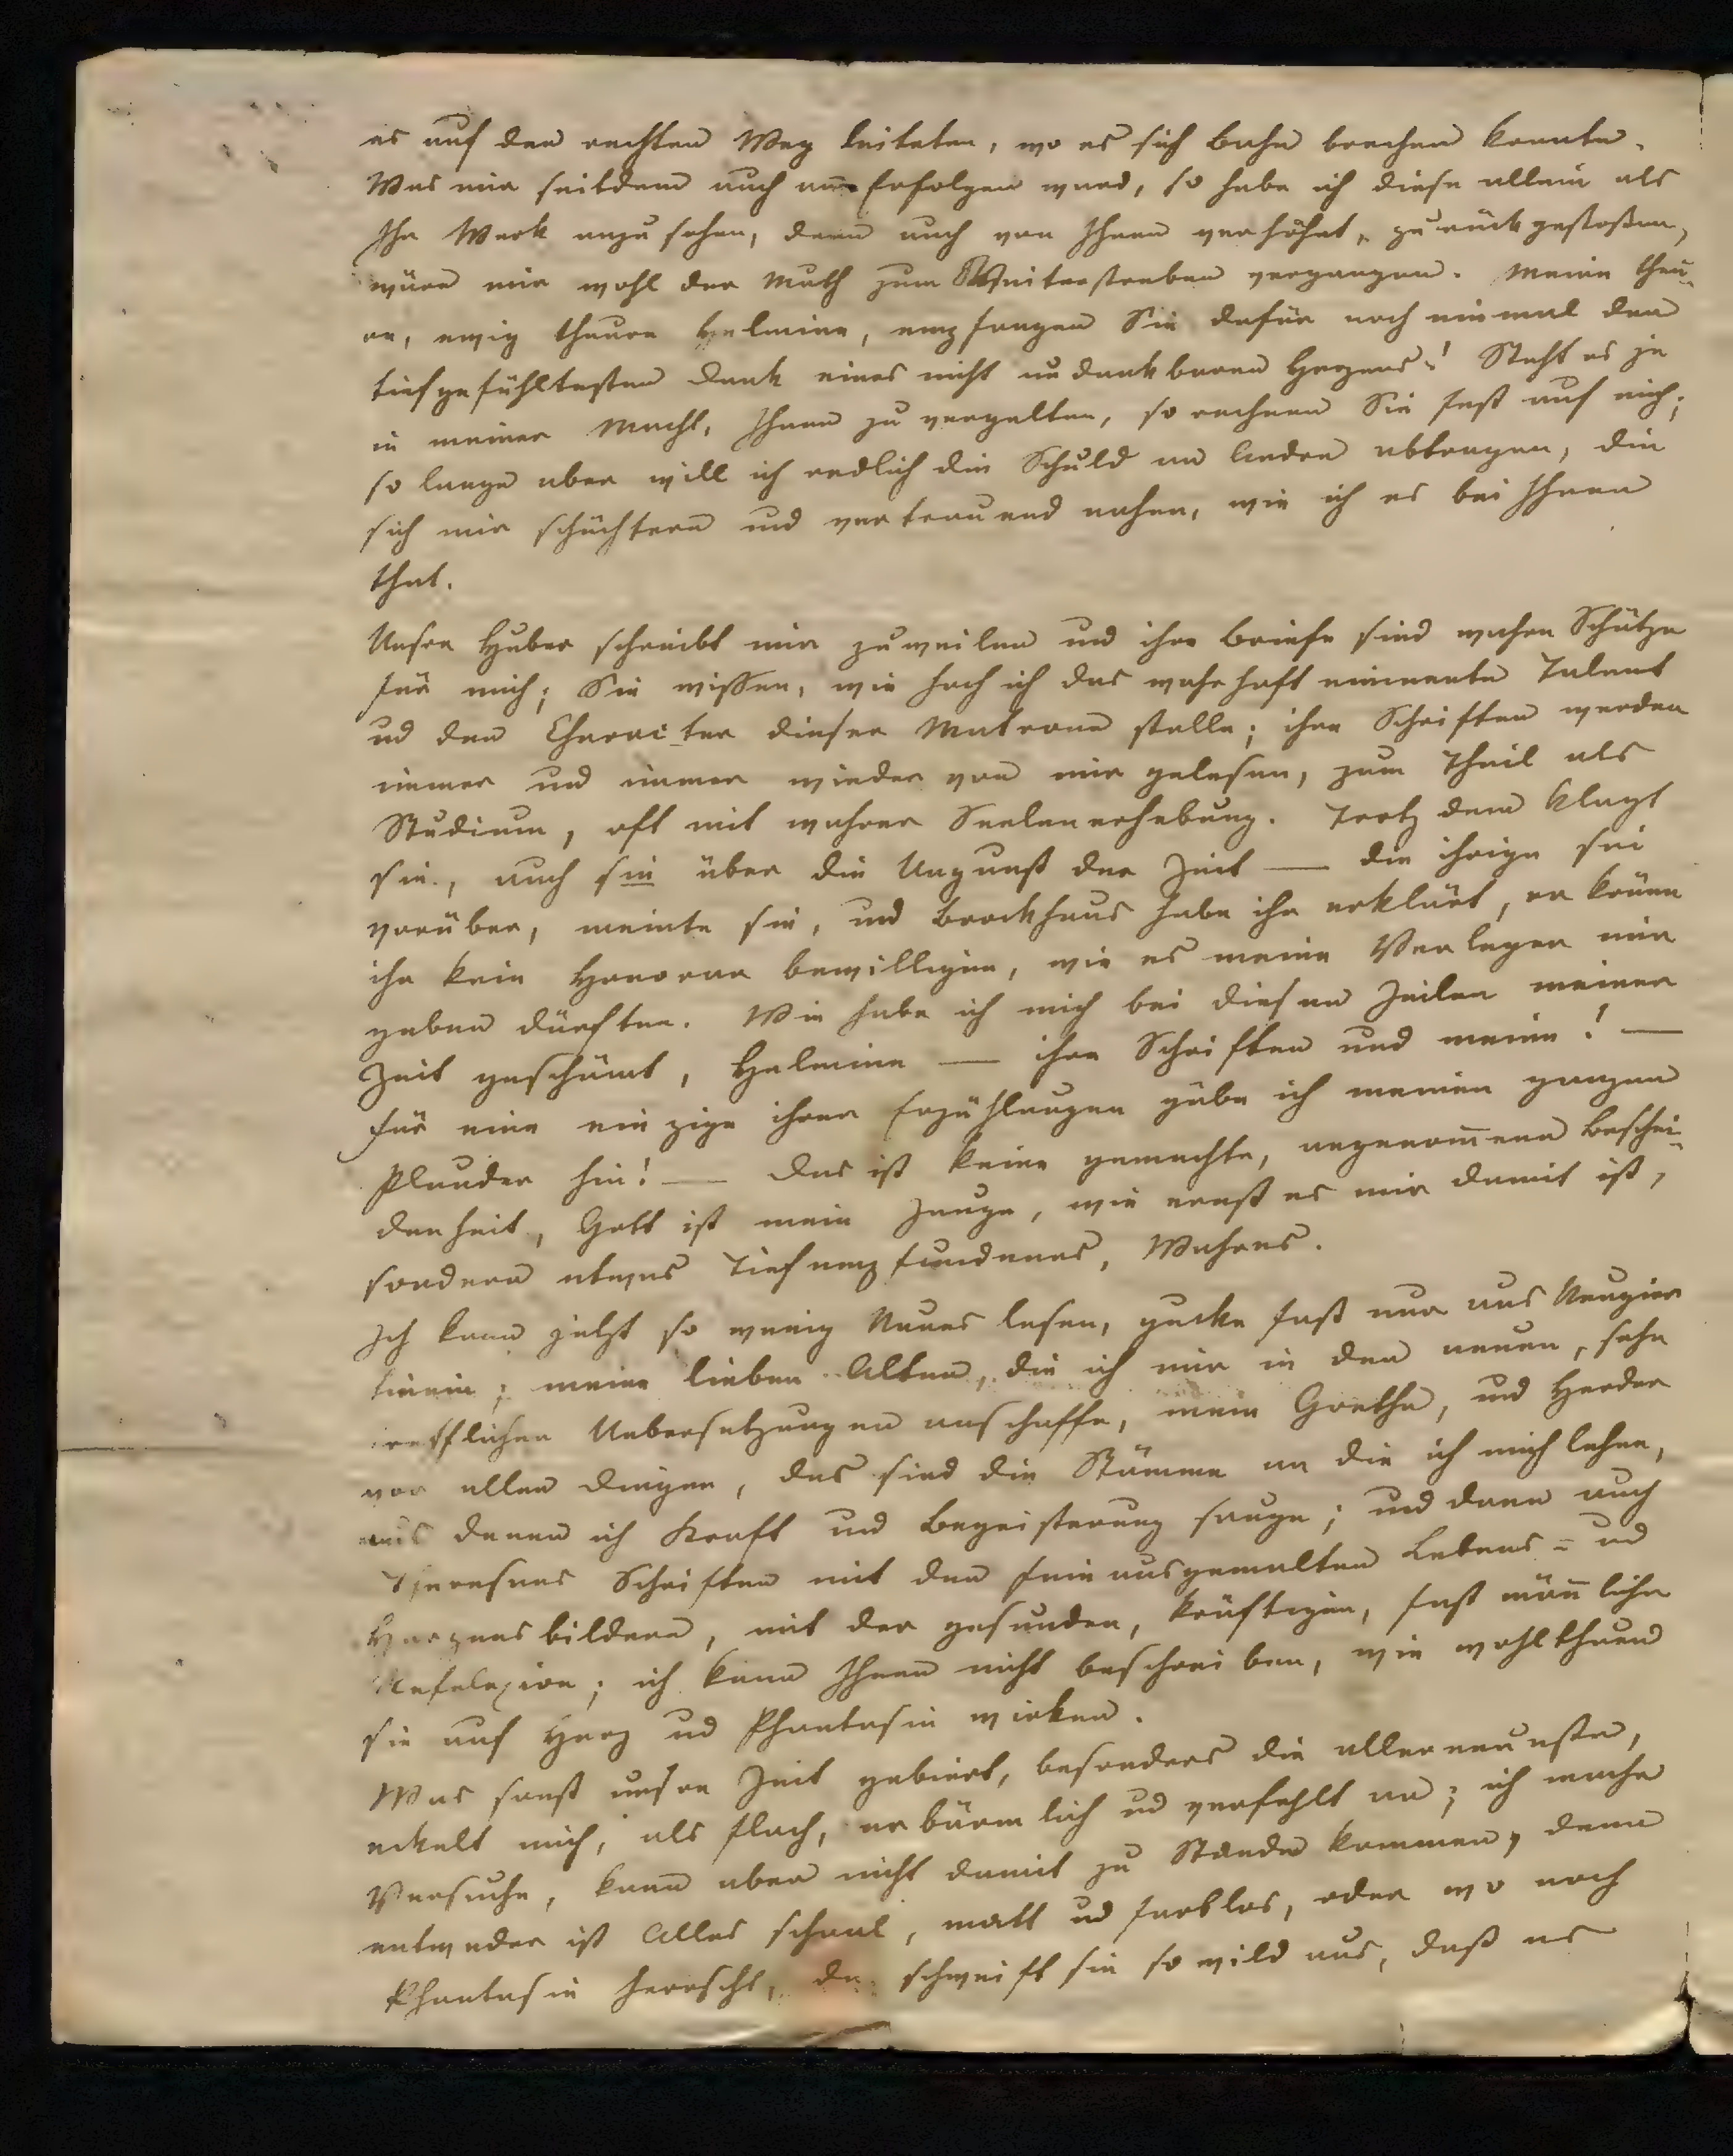 es auf den rechten Weg leiteten, wo es sich Bahn brechen konnte.
Was mir seitdem auch an Erfolgen ward, so habe ich diese allein als
Ihr Werk anzusehen, denn auch von Ihnen verhöhnt, zurückgestoßen,
wäre mir wohl der Muth zum Weiterstreben vergangen. Meine theu-
re, ewig theure Helmina, empfangen Sie dafür noch einmal den
tiefgefühltesten Dank eines nicht undankbaren Herzens! Steht es je
in meiner Macht, Ihnen zu vergelten, so rechnen Sie fest auf mich;
so lange aber will ich redlich die Schuld an Andre abtragen, die
sich mir schüchtern und vertrauend nahen, wie ich es bei Ihnen
that.
Unsre Huber schreibt mir zuweilen und ihre Briefe sind wahre Schätze
für mich; Sie wissen, wie hoch ich das wahrhaft eminente Talent
ud den Character dieser Matrone stelle; ihre Schriften werden
immer und immer wieder von mir gelesen, zum Theil als
Studium, oft mit wahrer Seelenerhebung. Trotz dem klagt
sie, auch sie über die Ungunst der Zeit — die ihrige sei
vorüber, meinte sie, und Brockhaus habe ihr erklärt, er könne
ihr kein Honorar bewilligen, wie es meine Verleger mir
geben dürften. Wie habe ich mich bei diesen Zeilen meiner
Zeit geschämt, Helmina — ihre Schriften und meine! —
für eine einzige ihrer Erzählungen gäbe ich meinen ganzen
Plunder hin! — Das ist keine gemachte, angenom̄ene Beschei-
denheit, Gott ist mein Zeuge, wie ernst es mir damit ist,
sondern etwas Tiefempfundenes, Wahres.
Ich kann jetzt so wenig Neues lesen, gucke fast nur aus Neugier
hinein; meine lieben Alten, die ich mir in den neuen, sehr
trefflichen Uebersetzungen anschaffe, mein Goethe, und Herder
vor allen Dingen, das sind die Stämme an die ich mich lehne,
aus denen ich Kraft und Begeisterung sauge; und dann auch
Theresens Schriften mit den fein ausgemalten Lebens- ud
Herzensbildern, mit der gesunden, kräftigen, fast män̄liche
Refelexion; ich kann Ihnen nicht beschreiben, wie wohlthuend
sie auf Herz ud Phantasie wirken.
Was sonst unsre Zeit gebiert, besonders die allerneueste,
eckelt mich, als flach, erbärmlich ud verfehlt an; ich mache
Versuche, kann aber nicht damit zu Stande kommen, denn
entweder ist Alles schaal, matt ud farblos, oder wo noch
Phantasie herrscht, da schweift sie so wild aus, daß es